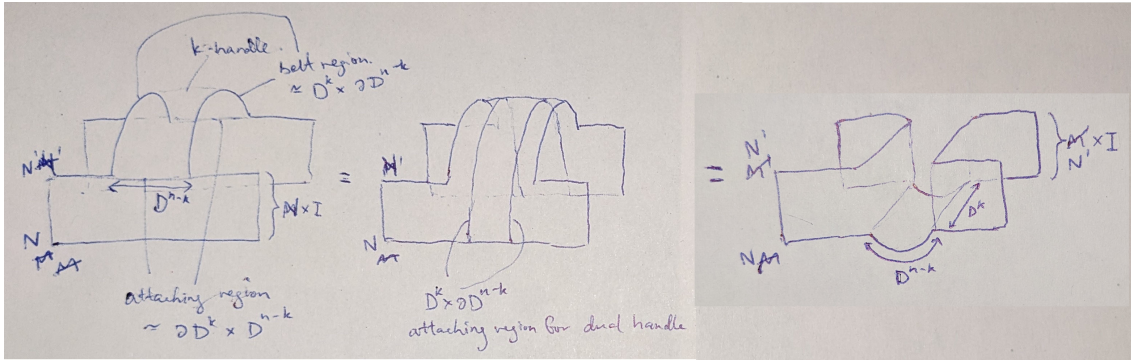 k-handle.
belt region.
≃ D^k × ∂D^{n-k}
N'
D^{n-k}
N × I
N
M
attaching region
≃ ∂D^k × D^{n-k}
≡
N'
N
M
D^k × ∂D^{n-k}
attaching region for dual handle
=
N'
M'
M' × I
N'
D^k
N M
D^{n-k}